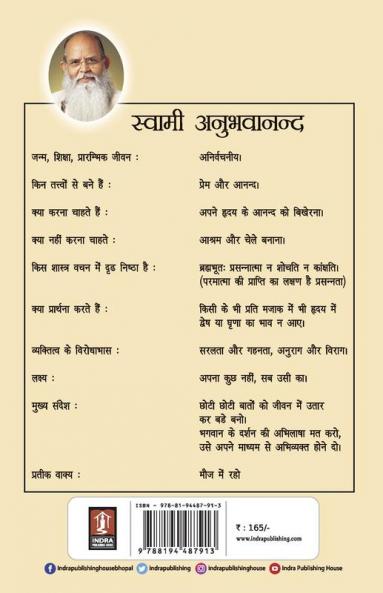 स्वामी अनुभवानन्द
जन्म, शिक्षा, प्रारम्भिक जीवन : अनिर्वचनीय।
किन तत्त्वों से बने हैं : प्रेम और आनन्द।
क्या करना चाहते हैं : अपने हृदय के आनन्द को बिखेरना।
क्या नहीं करना चाहते : आश्रम और चेले बनाना।
किस शास्त्र वचन में दृढ निष्ठा है : ब्रह्मभूतः प्रसन्नात्मा न शोचति न कांक्षति।
(परमात्मा की प्राप्ति का लक्षण है प्रसन्नता)
क्या प्रार्थना करते हैं : किसी के भी प्रति मजाक में भी हृदय में
द्वेष या घृणा का भाव न आए।
व्यक्तित्व के विरोधाभास : सरलता और गहनता, अनुराग और विराग।
लक्ष्य : अपना कुछ नहीं, सब उसी का।
मुख्य संदेश : छोटी छोटी बातों को जीवन में उतार
कर बडे बनो।
भगवान के दर्शन की अभिलाषा मत करो,
उसे अपने माध्यम से अभिव्यक्त होने दो।
प्रतीक वाक्य : मौज में रहो
ISBN - 978-81-94487-91-3
9 788194 487913
INDRA
PUBLISHING HOUSE
₹ : 165/-
www.indrapublishing.com
Indrapublishinghousebhopal indrapublishing indrapublishinghouse Indra Publishing House